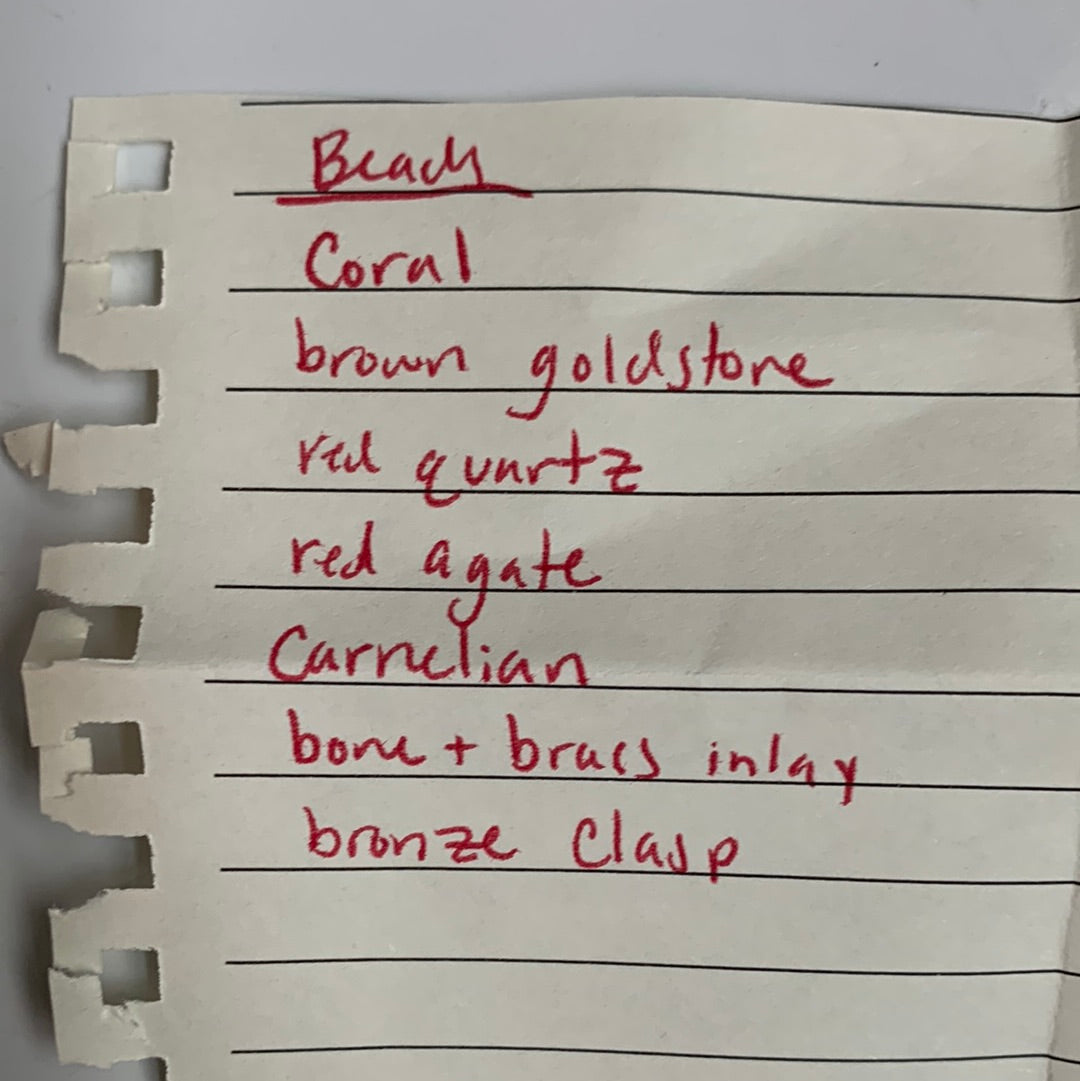 Beads
Coral
brown goldstone
red quartz
red agate
Carnelian
bone + brass inlay
bronze Clasp